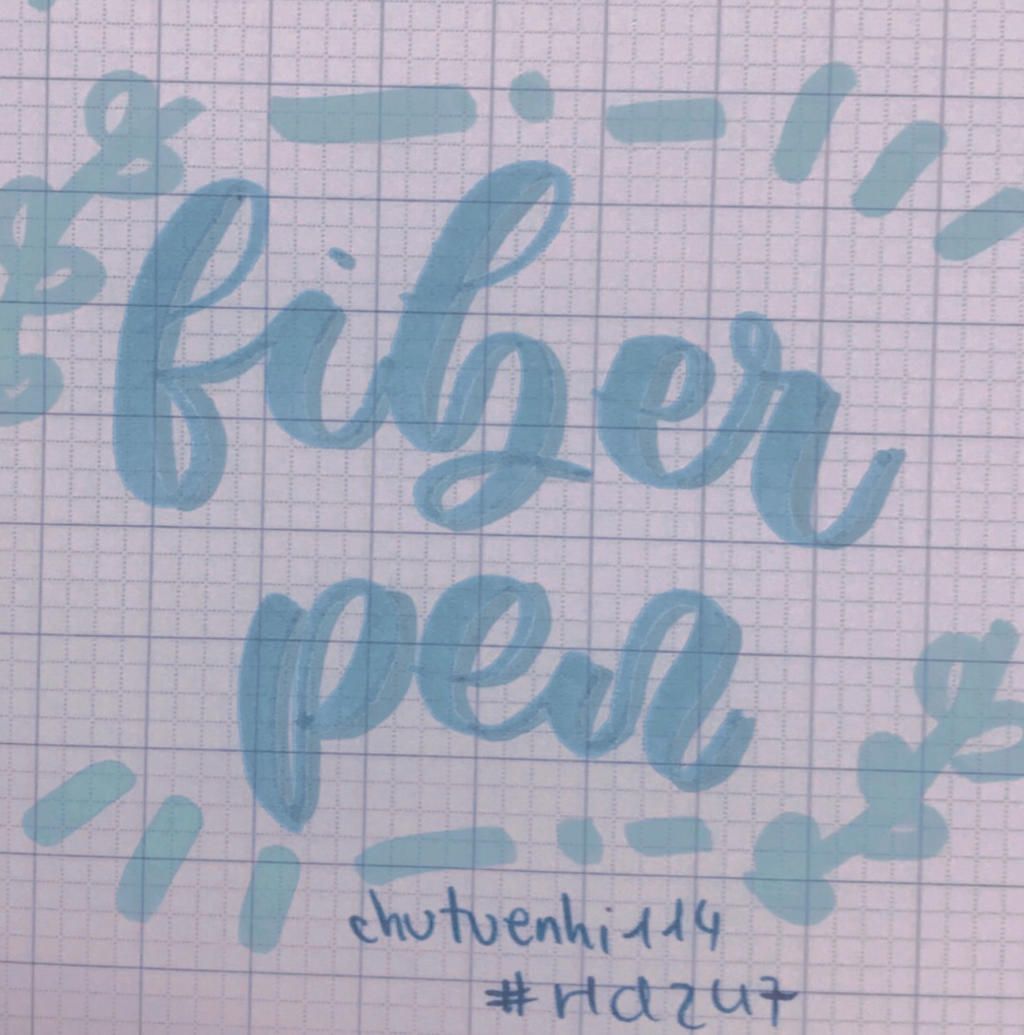 fiber
pen
chutuenhi114
#rld247